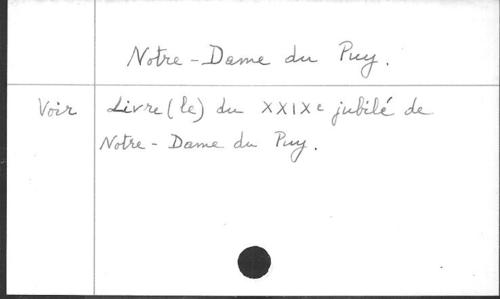 Notre-Dame du Puy.
Voir Livre (le) du XXIXe jubilé de
Notre-Dame du Puy.